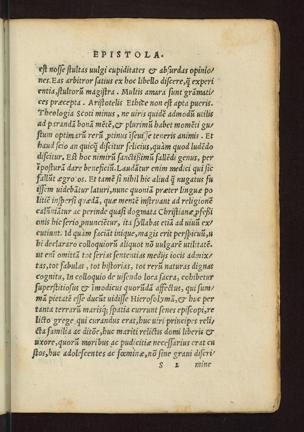 EPISTOLA.
est nosse stultas uulgi cupiditates & absurdas opinio/
nes. Eas arbitror satius ex hoc libello discere, q̃ experi
entia, stultorũ magistra. Multis amara sunt grãmati/
ces præcepta. Aristotelis Ethice non est apta pueris.
Theologia Scoti minus, ne uiris quidẽ admodũ utilis
ad parandã bonã mẽtẽ, & plurimũ habet momẽti gu/
stum optimarũ rerũ ꝓtinus ĩseuisse teneris animis. Et
haud scio an quicq̃ discitur felicius, quàm quod ludẽdo
discitur. Est hoc nimirũ sanctissimũ fallẽdi genus, per
ĩposturã dare beneficiũ. Laudãtur enim medici qui sic
fallũt ægrotos. Et tamẽ si nihil hic aliud q̃ nugatus fu
issem uidebãtur laturi, nunc quoniã præter linguæ po
litiẽ inspersi quædã, quæ mentẽ instruant ad religionẽ
calũniãtur ac perinde quasi dogmata Christianæ ꝓfessi
onis hic serio pnuncientur, ita syllabas etiã ad uiuũ ex/
cutiunt. Id quàm faciãt iniquæ, magis erit perspicuũ, u
bi declararo colloquiorũ aliquot nõ uulgarẽ utilitatẽ.
ut em̃ omittã tot serias sententias medijs iocis admix/
tas, tot fabulas, tot historias, tot rerũ naturas dignas
cognitu, In colloquio de uisendo loca sacra, cohibetur
superstitiosus & ĩmodicus quorũdã affectus, qui sum/
mã pietatẽ esse ducũt uidisse Hierosolymã, & hac per
tanta terrarũ marisq̃; spatia currunt senes episcopi, re
licto grege qui curandus erat, huc uiri principes reli/
cta familia ac ditiõe, huc mariti relictis domi liberis &
uxore, quorũ moribus ac pudicitiæ necessarius erat cu
stos, huc adolescentes ac fœminæ, nõ sine graui discri/
S 2 mine